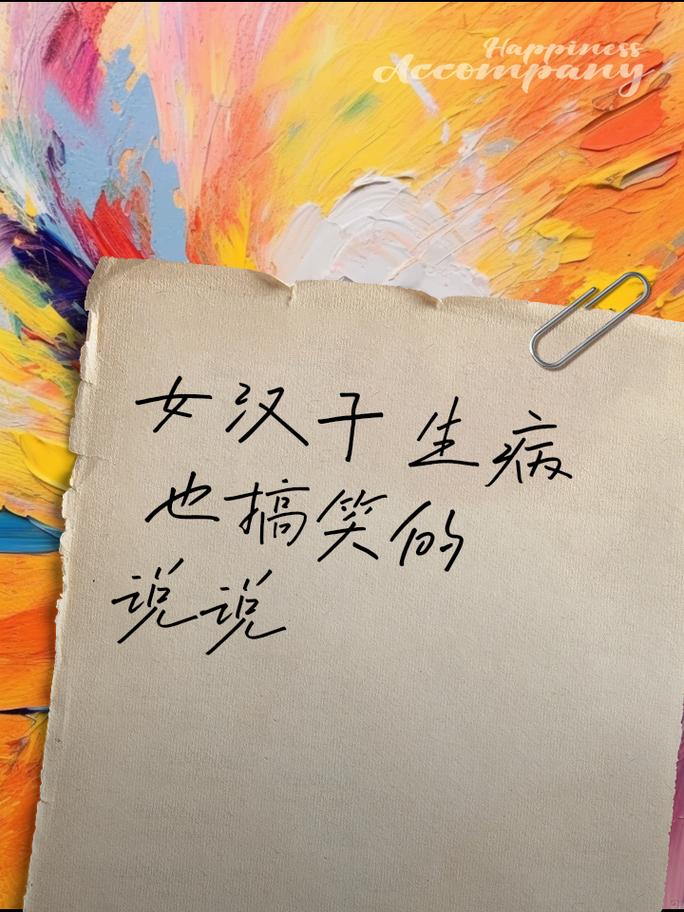 Happiness
Accompany
女汉子生病
也搞笑的
说说